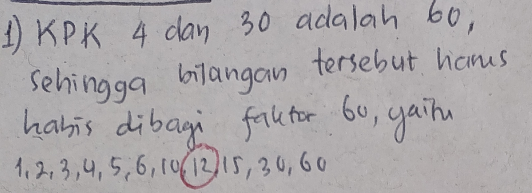 1) KPK 4 dan 30 adalah 60,
sehingga bilangan tersebut harus
habis dibagi faktor 60, yaitu
1, 2, 3, 4, 5, 6, 10, 12, 15, 30, 60